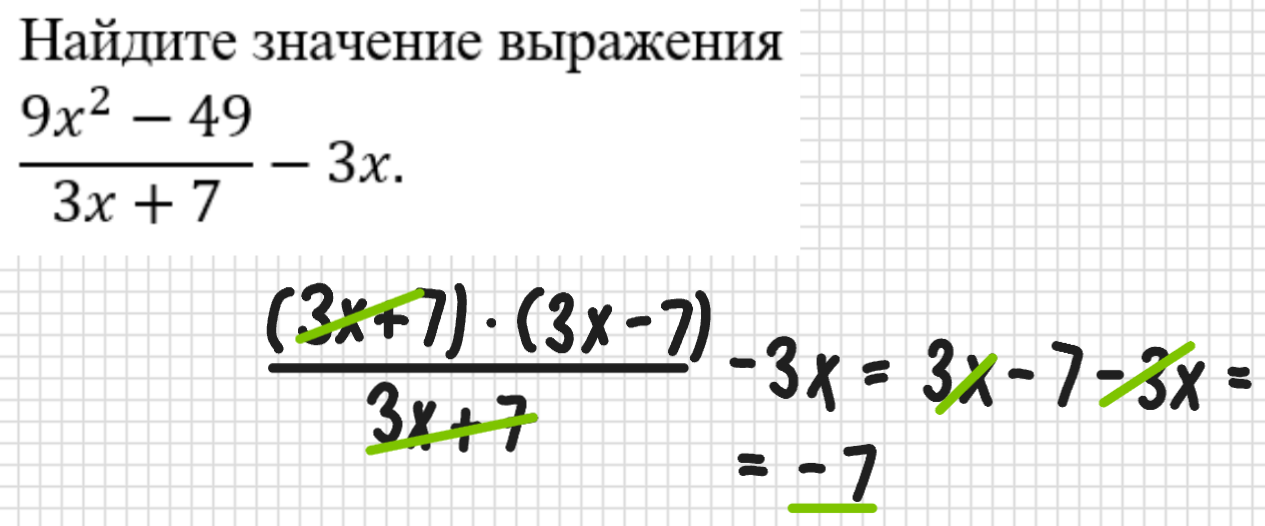 Найдите значение выражения
9x² − 49
3x + 7
− 3x.
(3x+7) · (3x-7)
3x+7
-3x = 3x-7-3x =
= -7